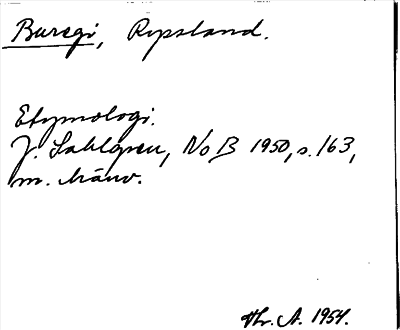 Buregi, Ryssland.
Etymologi.
J. Sahlgren, NoB 1950, s. 163,
m. hänv.
Hr. A. 1954.